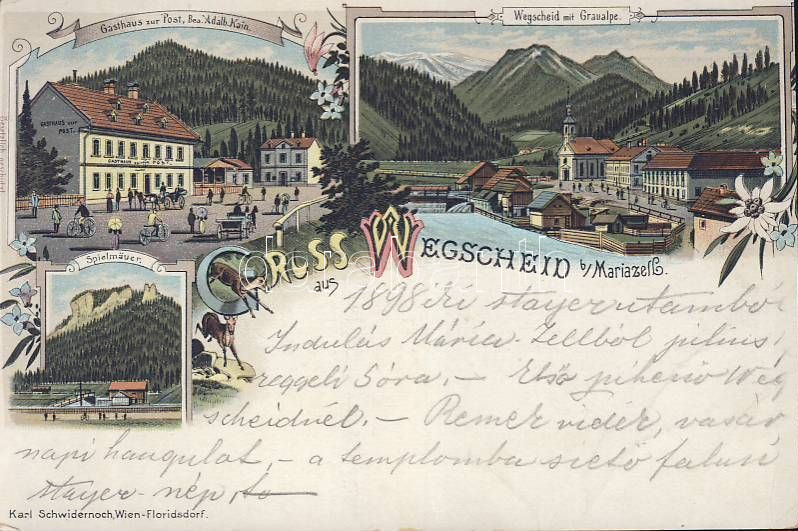 Gasthaus zur Post, Bes. Adalb. Kain.
Wegscheid mit Graualpe.
GASTHAUS zur POST.
GASTHAUS zur POST
Spielmäuer.
GRUSS aus WEGSCHEID b/ Mariazell.
1898 iki stayerutamból
Indulás Mária-Zellből július
reggeli 5 óra, – Első pihenő Weg
scheidnél. – Remek vidék, vasár
napi hangulat, – a templomba siető falusi
stayer-nép,
Karl Schwidernoch, Wien-Floridsdorf.